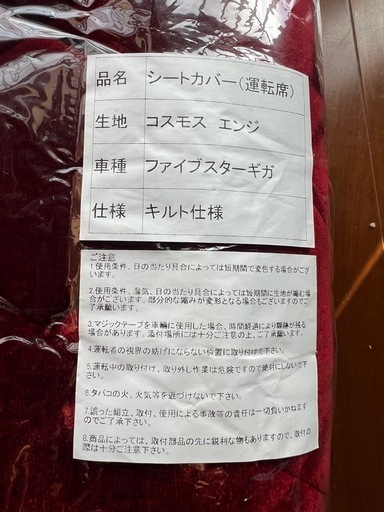 品名 シートカバー(運転席)
生地 コスモス エンジ
車種 ファイブスターギガ
仕様 キルト仕様
ご注意
1.使用条件、日の当たり具合によっては短期間で変色する場合がござ
います。
2.使用条件、湿気、日の当たり具合によっては短期間に生地が縮む場
合がございます。部分的な縮みが変形となる場合もございますのでご
了承願います。
3.マジックテープを車輌に使用した場合、時間経過により痕跡が残る
場合があります。添付場所には十分ご注意の上、ご了承願います。
4.運転者の視界の妨げにならない位置に取り付けて下さい。
5.運転中の取り付け、取り外し作業は危険ですので絶対にしないで下
さい。
6.タバコの火、火気等を近づけないで下さい。
7.誤った組立、取付、使用による事故等の責任は一切負いかねます
のでご了承下さい。
8.商品によっては、取付部品の先に鋭利な物もありますので、取付の
際は十分ご注意下さい。